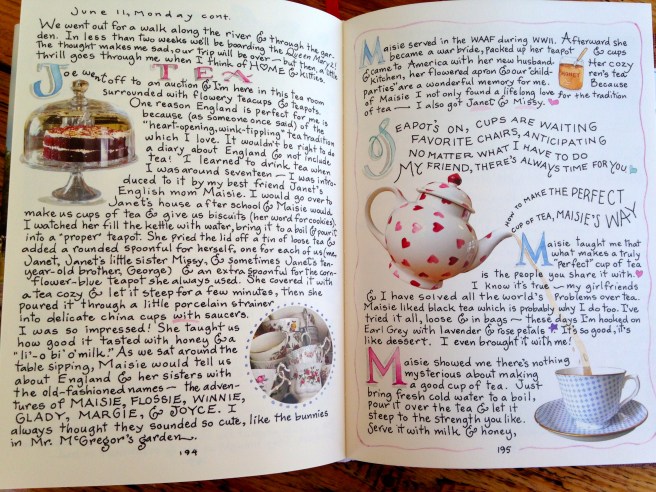 June 11, Monday cont.
We went for a walk along the river & through the gar-
den. In less than two weeks we'll be boarding the Queen Mary 2!
The thought makes me sad, our trip will be over — but then, a little
thrill goes through me when I think of HOME & kitties.
TEA
Joe went off to an auction & I'm here in this tea room
surrounded with flowery teacups & teapots.
One reason England is perfect for me is
because (as someone once said) of the
"heart-opening, wink-tippling" tea tradition
which I love. It wouldn't be right to do
a diary about England & not include
tea! I learned to drink tea when
I was around seventeen — I was intro-
duced to it by my best friend Janet's
English mom Maisie. I would go over to
Janet's house after school & Maisie would
make us cups of tea & give us biscuits (her word for cookies).
I watched her fill the kettle with water, bring it to a boil & pour it
into a "proper" teapot. She pried the lid off a tin of loose tea &
added a rounded spoonful for herself, one for each of us (me,
Janet, Janet's little sister Missy, & sometimes Janet's ten-
year-old brother, George) & an extra spoonful for the corn-
flower-blue teapot she always used. She covered it with
a tea cozy & let it steep for a few minutes, then she
poured it through a little porcelain strainer
into delicate china cups with saucers.
I was so impressed! She taught us
how good it tasted with honey & a
"li'-o bi' o' milk." As we sat around the
table sipping, Maisie would tell us
about England & her sisters with
the old-fashioned names — the adven-
tures of MAISIE, FLOSSIE, WINNIE,
GLADY, MARGIE, & JOYCE. I
always thought they sounded so cute, like the bunnies
in Mr. McGregor's garden.
194
Maisie served in the WAAF during WWII. Afterward she
became a war bride, packed up her teapot & cups
& came to America with her new husband. Her cozy
kitchen, her flowered apron & our "child-
ren's tea
parties" are a wonderful memory for me. Because
of Maisie I not only found a lifelong love for the tradition
of tea — I also got Janet & Missy.
HONEY
TEAPOT'S ON, CUPS ARE WAITING
FAVORITE CHAIRS, ANTICIPATING
NO MATTER WHAT I HAVE TO DO
MY FRIEND, THERE'S ALWAYS TIME FOR YOU.
HOW TO MAKE THE PERFECT
CUP OF TEA, MAISIE'S WAY
Maisie taught me that
what makes a truly
"perfect" cup of tea
is the people you share it with.
I know it's true — my girlfriends
& I have solved all the world's problems over tea.
Maisie liked black tea which is probably why I do too. I've
tried it all, loose & in bags — these days I'm hooked on
Earl Grey with lavender & rose petals It's so good, it's
like dessert. I even brought it with me!
Maisie showed me there's nothing
mysterious about making
a good cup of tea. Just
bring fresh cold water to a boil,
pour it over the tea & let it
steep to the strength you like.
Serve it with milk & honey,
195